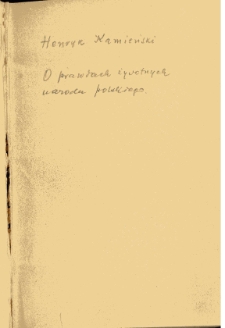 Henryk Kamieński
O prawdach żywotnych
narodu polskiego.